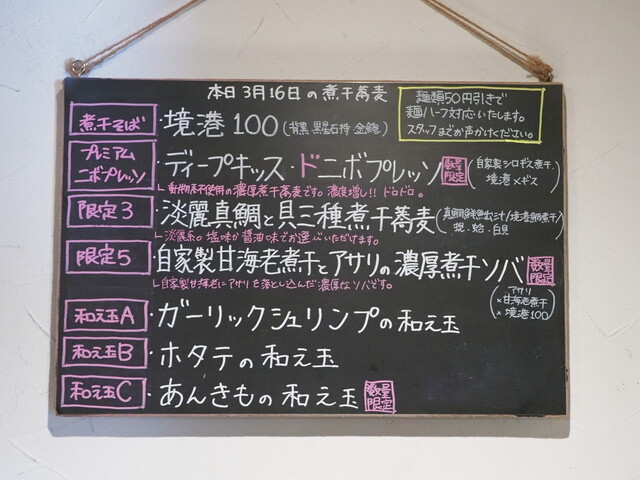 本日3月16日の煮干蕎麦
麺類50円引きで
麺ハーフ対応いたします。
スタッフまでお声かけください。
煮干そば ・境港100 (背黒、黒石持、金鯵)
プレミアム
ニボプレッソ ・ディープキッス・ドニボプレッソ 数量限定 (自家製シロギス煮干、
境港メギス)
動物系不使用の濃厚煮干蕎麦です。濃度増し!!ドロドロ。
限定3 ・淡麗真鯛と貝三種煮干蕎麦 (真鯛鮮魚出汁/境港鯛煮干/
蜆・蛤・白貝
淡麗系。塩味か醤油味でお選びいただけます。
限定5 ・自家製甘海老煮干とアサリの濃厚煮干ソバ 数量限定
自家製甘海老にアサリを落とし込んだ濃厚なソバです。
(アサリ
×甘海老煮干
×境港100)
和え玉A ・ガーリックシュリンプの和え玉
和え玉B ・ホタテの和え玉
和え玉C ・あんきもの和え玉 数量限定